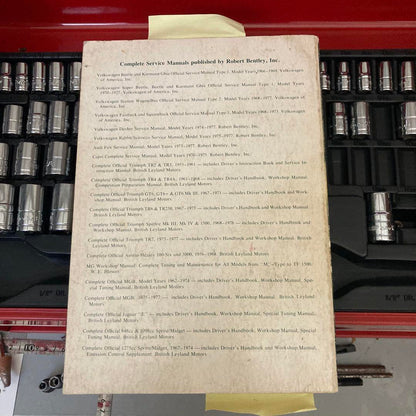 Complete Service Manuals published by Robert Bentley, Inc.
Volkswagen Beetle and Karmann Ghia Official Service Manual Type 1, Model Years 1966–1969. Volkswagen
of America, Inc.
Volkswagen Super Beetle, Beetle and Karmann Ghia Official Service Manual Type 1, Model Years
1970–1977. Volkswagen of America, Inc.
Volkswagen Station Wagon/Bus Official Service Manual Type 2, Model Years 1968–1977. Volkswagen of
America, Inc.
Volkswagen Fastback and Squareback Official Service Manual Type 3, 1968–1973. Volkswagen
of America, Inc.
Volkswagen Dasher Service Manual, Model Years 1974–1977. Robert Bentley, Inc.
Volkswagen Rabbit/Scirocco Service Manual, Model Years 1975–1977. Robert Bentley, Inc.
Audi Fox Service Manual, Model Years 1973–1977. Robert Bentley, Inc.
Capri Complete Service Manual, Model Years 1970–1975. Robert Bentley, Inc.
Complete Official Triumph TR2 & TR3, 1953–1961 — includes Driver's Instruction Book and Service In-
struction Manual. British Leyland Motors
Complete Official Triumph TR4 & TR4A, 1961–1968 — includes Driver's Handbook, Workshop Manual,
Competition Preparation Manual. British Leyland Motors
Complete Official Triumph GT6, GT6+ & GT6 Mk III, 1967–1973 — includes Driver's Handbook and Work-
shop Manual. British Leyland Motors
Complete Official Triumph TR6 & TR250, 1967–1975 — includes Driver's Handbook and Workshop Manual.
British Leyland Motors
Complete Official Triumph Spitfire Mk III, Mk IV & 1500, 1968–1978 — includes Driver's Handbook and
Workshop Manual. British Leyland Motors
Complete Official Triumph TR7, 1975–1977 — includes Driver's Handbook and Workshop Manual. British
Leyland Motors
Complete Official Austin-Healey 100-Six and 3000, 1956–1968. British Leyland Motors
MG Workshop Manual: Complete Tuning and Maintenance for All Models from "M"-Type to TF 1500.
W. E. Blower
Complete Official MGB, Model Years 1962–1974 — includes Driver's Handbook, Workshop Manual, Spe-
cial Tuning Manual. British Leyland Motors
Complete Official MGB, 1975–1977 — includes Driver's Handbook, Workshop Manual. British Leyland
Motors
Complete Official Jaguar "E" — includes Driver's Handbook, Workshop Manual, Special Tuning Manual.
British Leyland Motors
Complete Official 948cc & 1098cc Sprite/Midget — includes Driver's Handbook, Workshop Manual, Special
Tuning Manual. British Leyland Motors
Complete Official 1275cc Sprite/Midget, 1967–1974 — includes Driver's Handbook and Workshop Manual,
Emission Control Supplement. British Leyland Motors